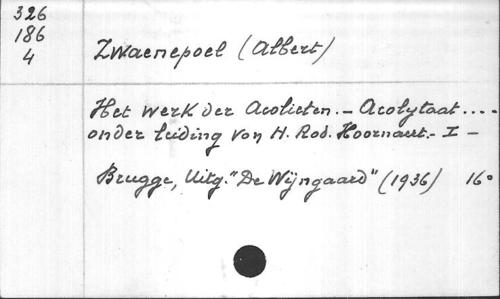 326
186
4
Zwaenepoel (Albert)
Het werk der Acolieten. - Acolytaat....
onder leiding von H. Rod. Hoornaert. - I -
Brugge, Uitg. "De Wijngaard" (1936) 16°